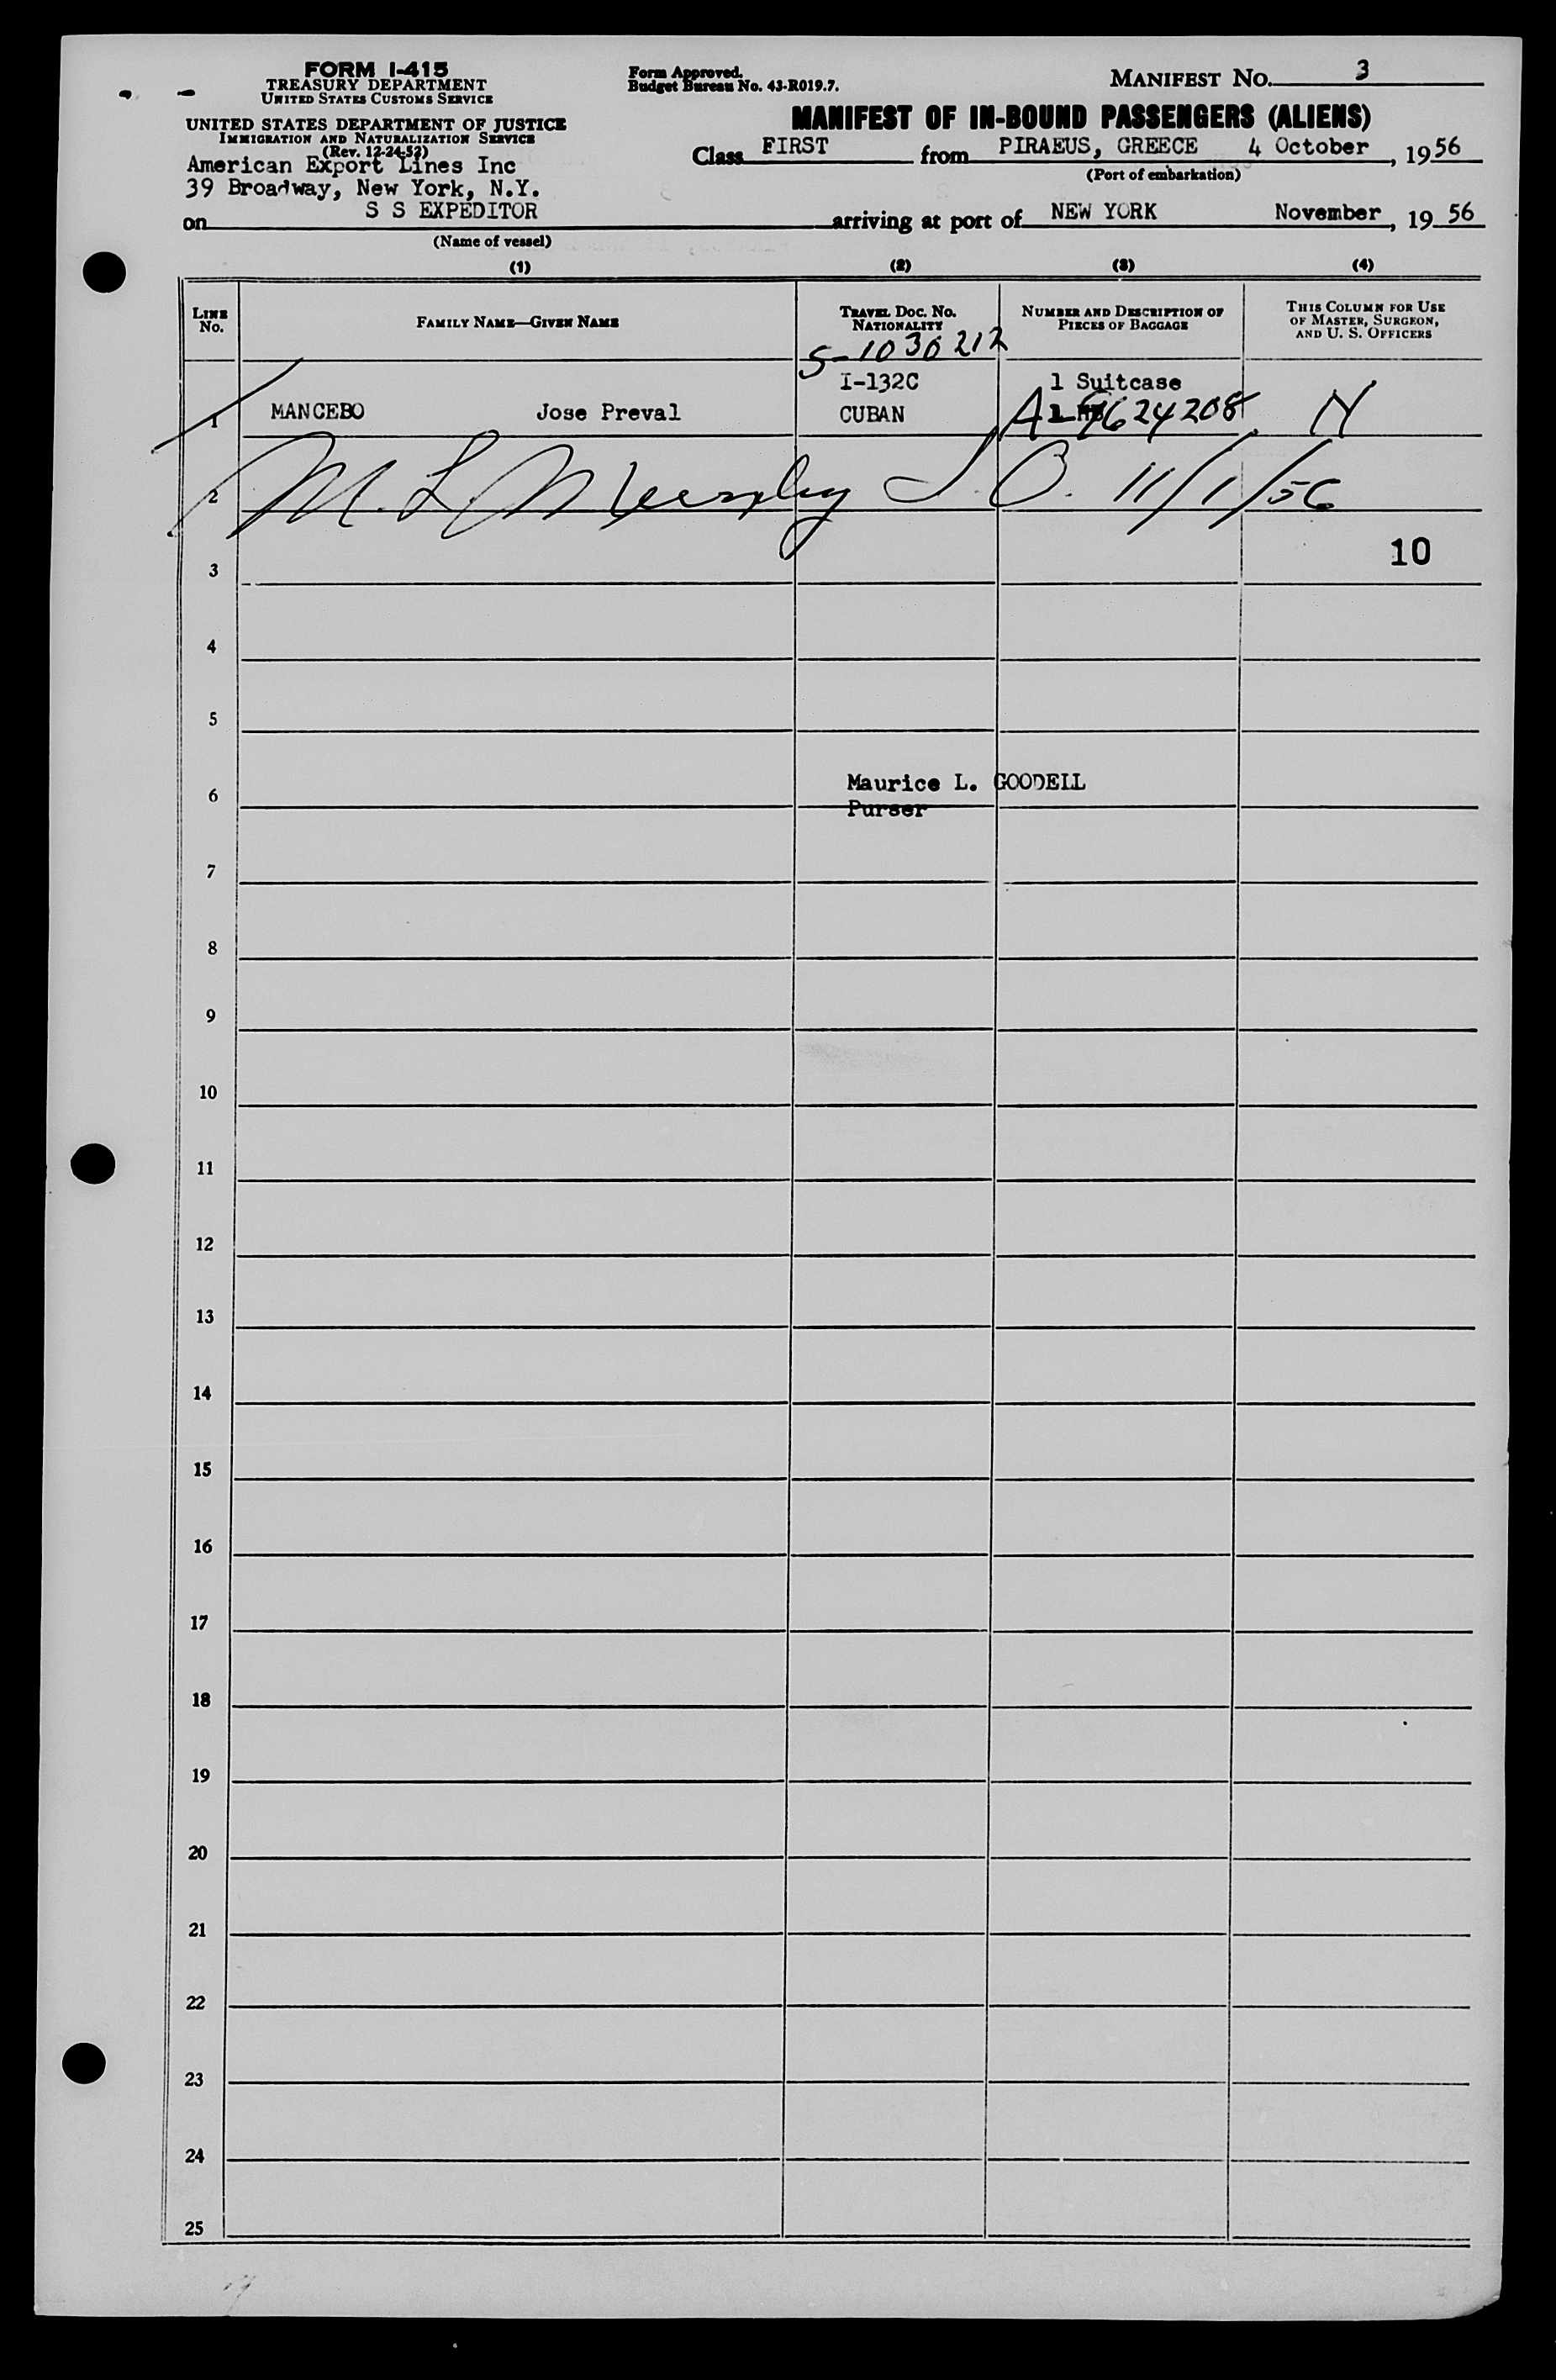 FORM I-415
TREASURY DEPARTMENT
UNITED STATES CUSTOMS SERVICE
UNITED STATES DEPARTMENT OF JUSTICE
IMMIGRATION AND NATURALIZATION SERVICE
(Rev. 12-24-52)
American Export Lines Inc
39 Broadway, New York, N.Y.
Form Approved.
Budget Bureau No. 43-R019.7.
MANIFEST NO. 3
MANIFEST OF IN-BOUND PASSENGERS (ALIENS)
Class FIRST from PIRAEUS, GREECE 4 October, 1956
(Port of embarkation)
on S S EXPEDITOR arriving at port of NEW YORK November, 19 56
(Name of vessel)
(1) (2) (3) (4)
LINE No. FAMILY NAME—GIVEN NAME TRAVEL DOC. NO. NATIONALITY NUMBER AND DESCRIPTION OF PIECES OF BAGGAGE THIS COLUMN FOR USE OF MASTER, SURGEON, AND U. S. OFFICERS
S-1030212
I-132C 1 Suitcase
1 MANCEBO Jose Preval CUBAN A-9624208 N
2 M. L. Murphy I.O. 11/1/56
10
3
4
5
Maurice L. GOODELL
6
Purser
7
8
9
10
11
12
13
14
15
16
17
18
19
20
21
22
23
24
25